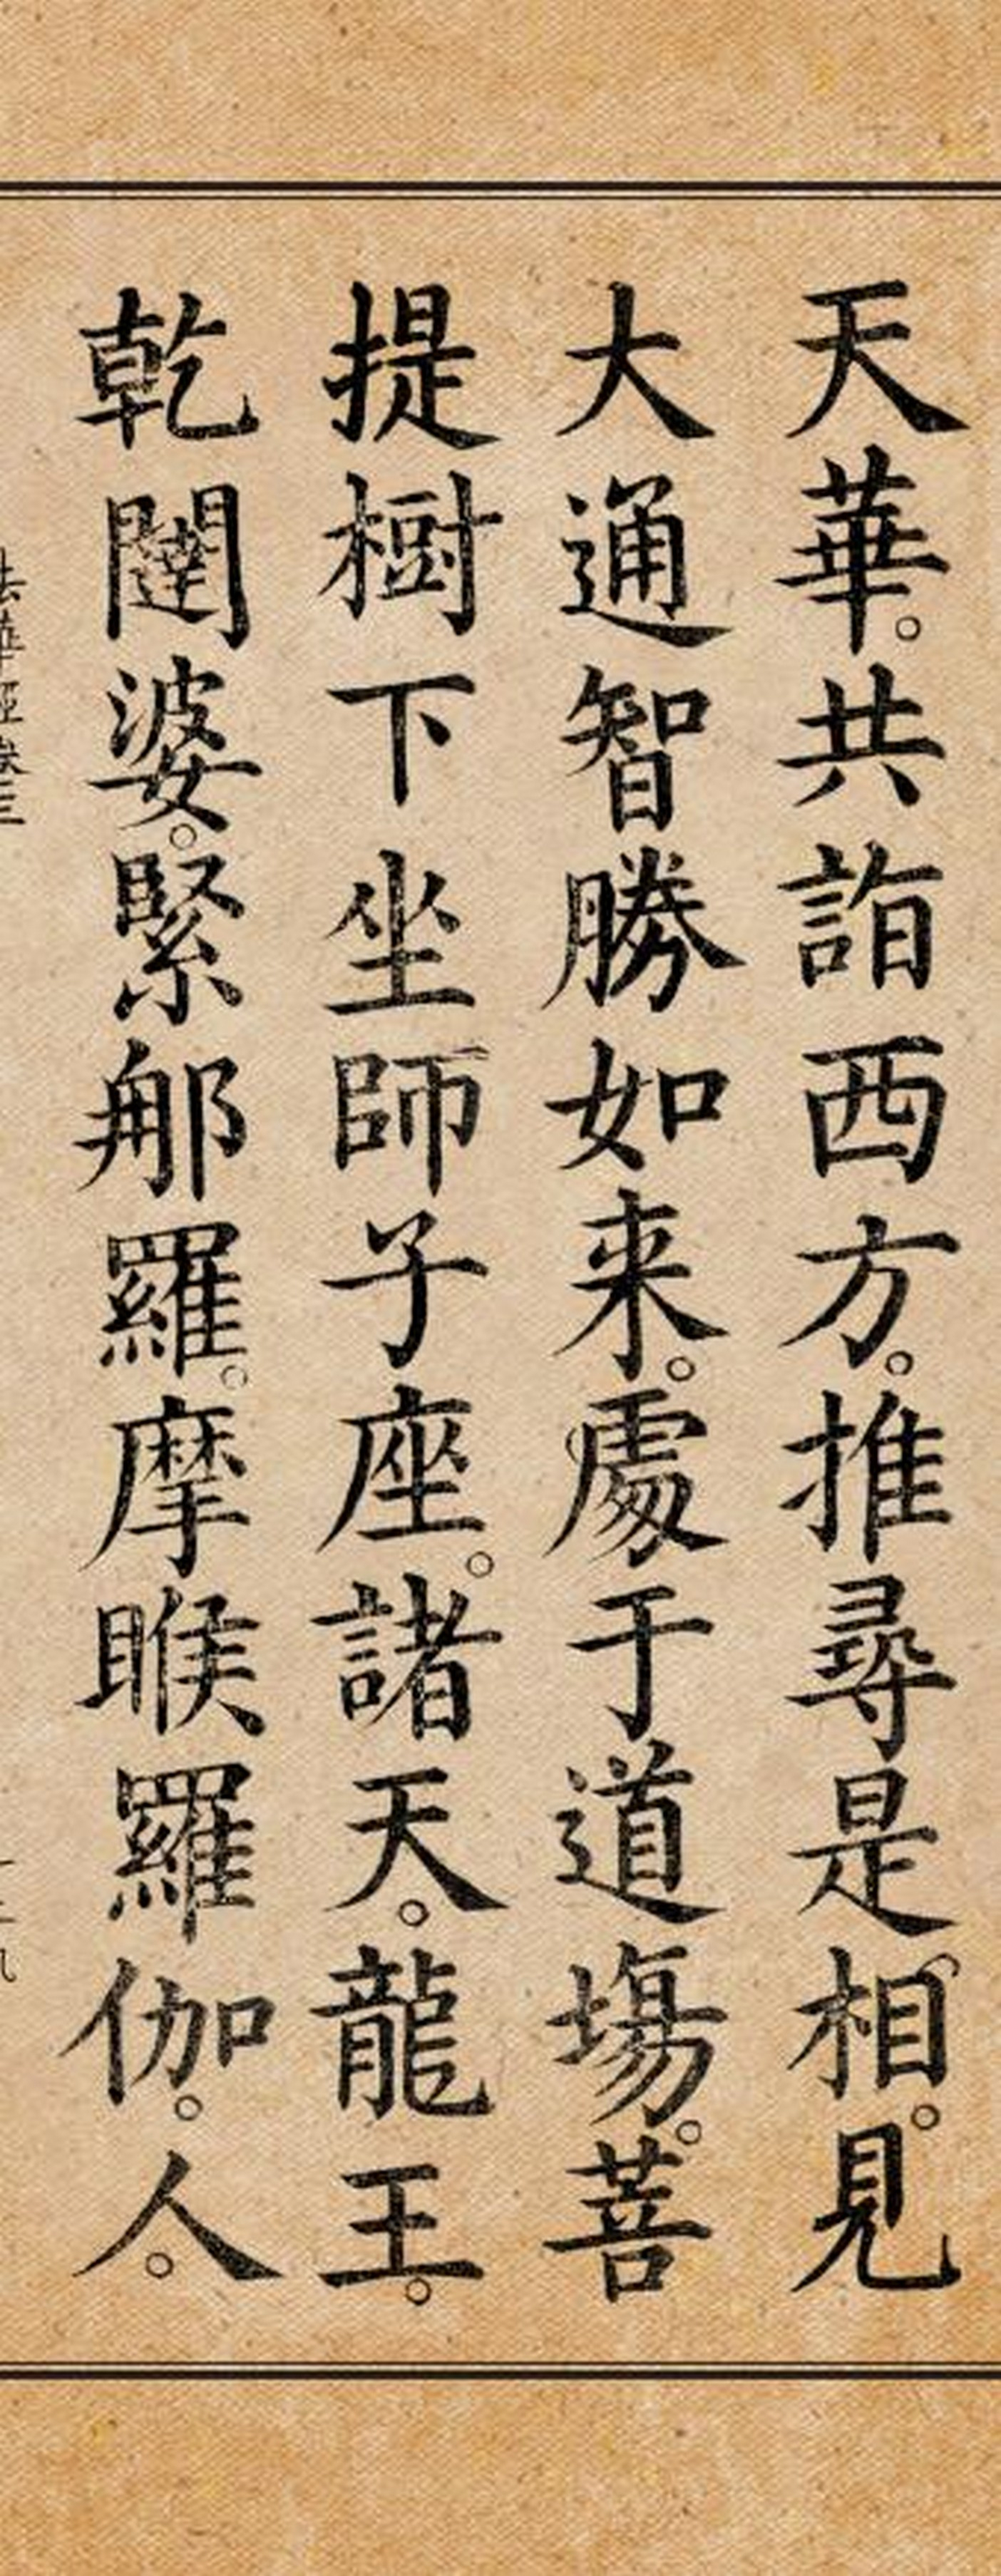 天華。共詣西方。推尋是相。見
大通智勝如来。處于道場。菩
提樹下坐師子座。諸天。龍王。
乾闥婆。緊那羅。摩睺羅伽。人。
法華經卷三